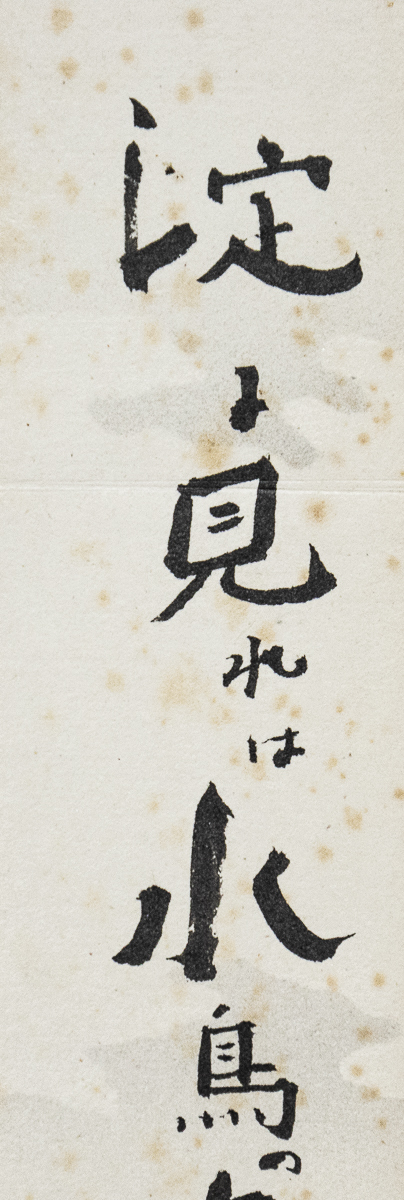 淀よ見れは水鳥の